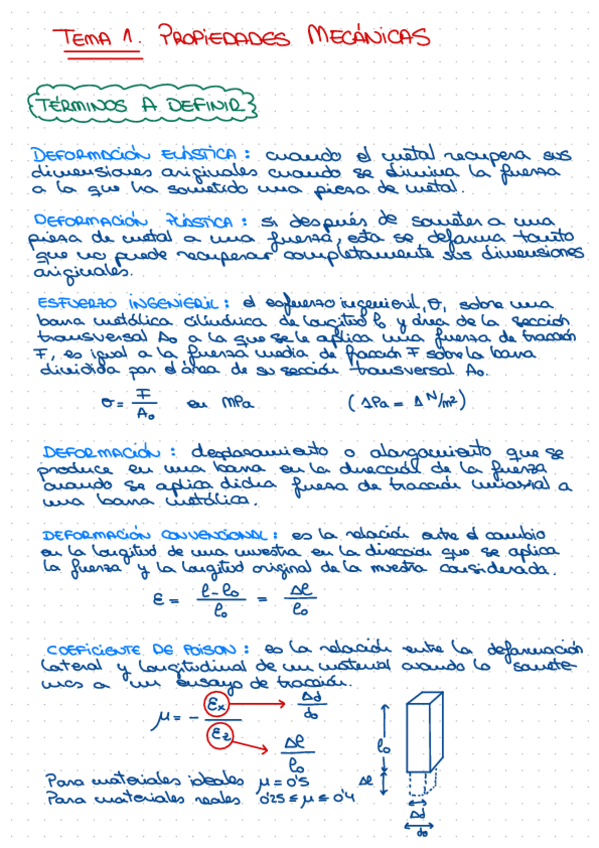 TEMA 1. PROPIEDADES MECÁNICAS
TÉRMINOS A DEFINIR
DEFORMACIÓN ELÁSTICA: cuando el metal recupera sus
dimensiones originales cuando se elimina la fuerza
a la que ha sometido una pieza de metal.
DEFORMACIÓN PLÁSTICA: si después de someter a una
pieza de metal a una fuerza, esta se deforma tanto
que no puede recuperar completamente sus dimensiones
originales.
ESFUERZO INGENIERIL: el esfuerzo ingenieril, σ, sobre una
barra metálica cilíndrica de longitud l₀ y área de la sección
transversal A₀ a la que se le aplica una fuerza de tracción
F, es igual a la fuerza media de tracción F sobre la barra
dividida por el área de su sección transversal A₀.
σ = F/A₀ en MPa (1Pa = 1 N/m²)
DEFORMACIÓN: desplazamiento o alargamiento que se
produce en una barra en la dirección de la fuerza
cuando se aplica dicha fuerza de tracción uniaxial a
una barra metálica.
DEFORMACIÓN CONVENCIONAL: es la relación entre el cambio
en la longitud de una muestra en la dirección que se aplica
la fuerza y la longitud original de la muestra considerada.
ε = l-l₀/l₀ = Δl/l₀
COEFICIENTE DE POISON: es la relación entre la deformación
lateral y longitudinal de un material cuando lo somete-
mos a un ensayo de tracción.
μ = - εx/εz
Δd/d₀
Δl/l₀
Para materiales ideales μ = 0'5
Para materiales reales 0'25 ≤ μ ≤ 0'4
l₀
Δl
Δd
d₀